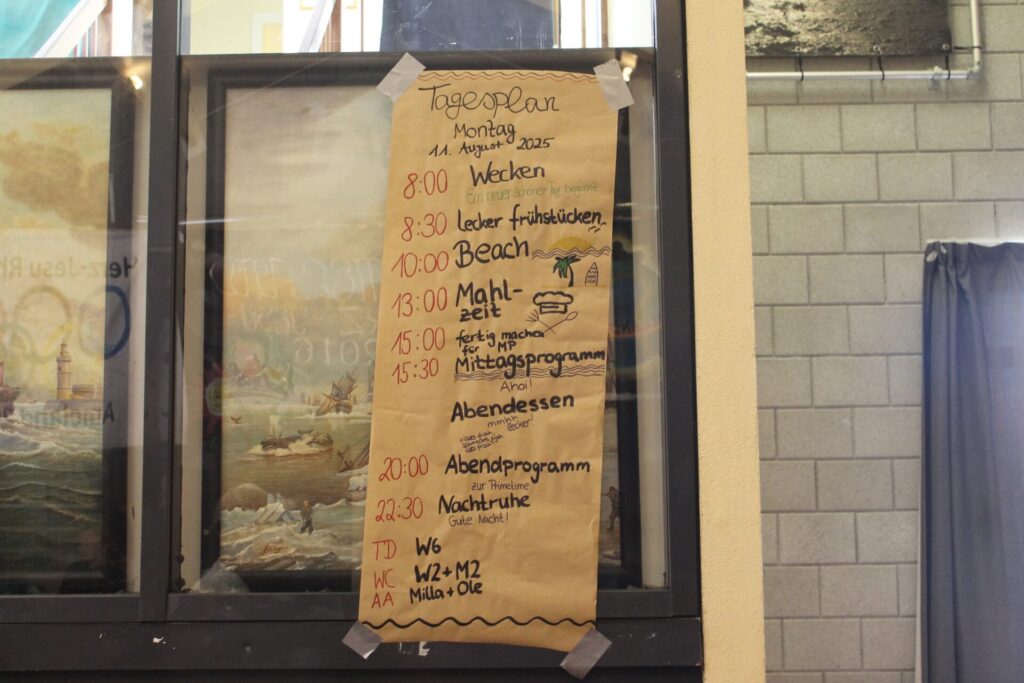 Tagesplan
Montag
11. August 2025
8:00 Wecken
Ein neuer schöner Tag beginnt
8:30 lecker frühstücken
10:00 Beach
13:00 Mahl-
zeit
15:00 fertig machen
für MP
15:30 Mittagsprogramm
Ahoi!
Abendessen
mmhh
lecker!
20:00 Abendprogramm
zur Primetime
22:30 Nachtruhe
Gute Nacht!
TD W6
WC W2+M2
AA Milla+Ole
Herz-Jesu Rh
2016